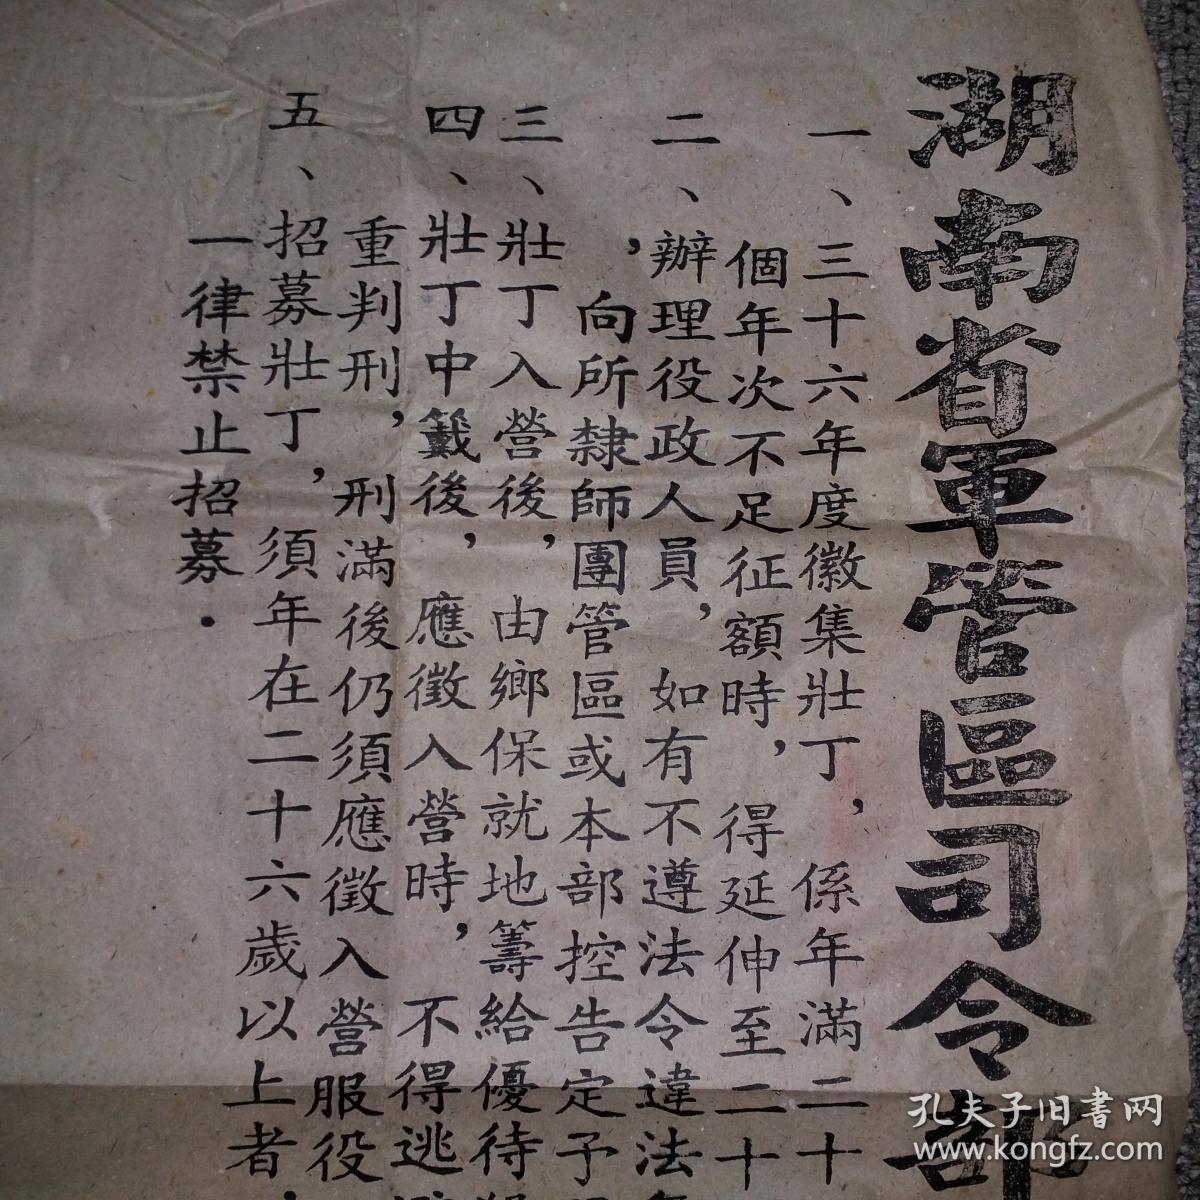 湖南省軍管區司令部
一、三十六年度徵集壯丁，係年滿二十
個年次不足征額時，得延伸至二十
二、辦理役政人員，如有不遵法令違法
，向所隸師團管區或本部控告定予
三、壯丁入營後，由鄉保就地籌給優待
四、壯丁中籤後，應徵入營時，不得逃
重判刑，刑滿後仍須應徵入營服役
五、招募壯丁，須年在二十六歲以上者，
一律禁止招募．
孔夫子旧書网
www.kongfz.com